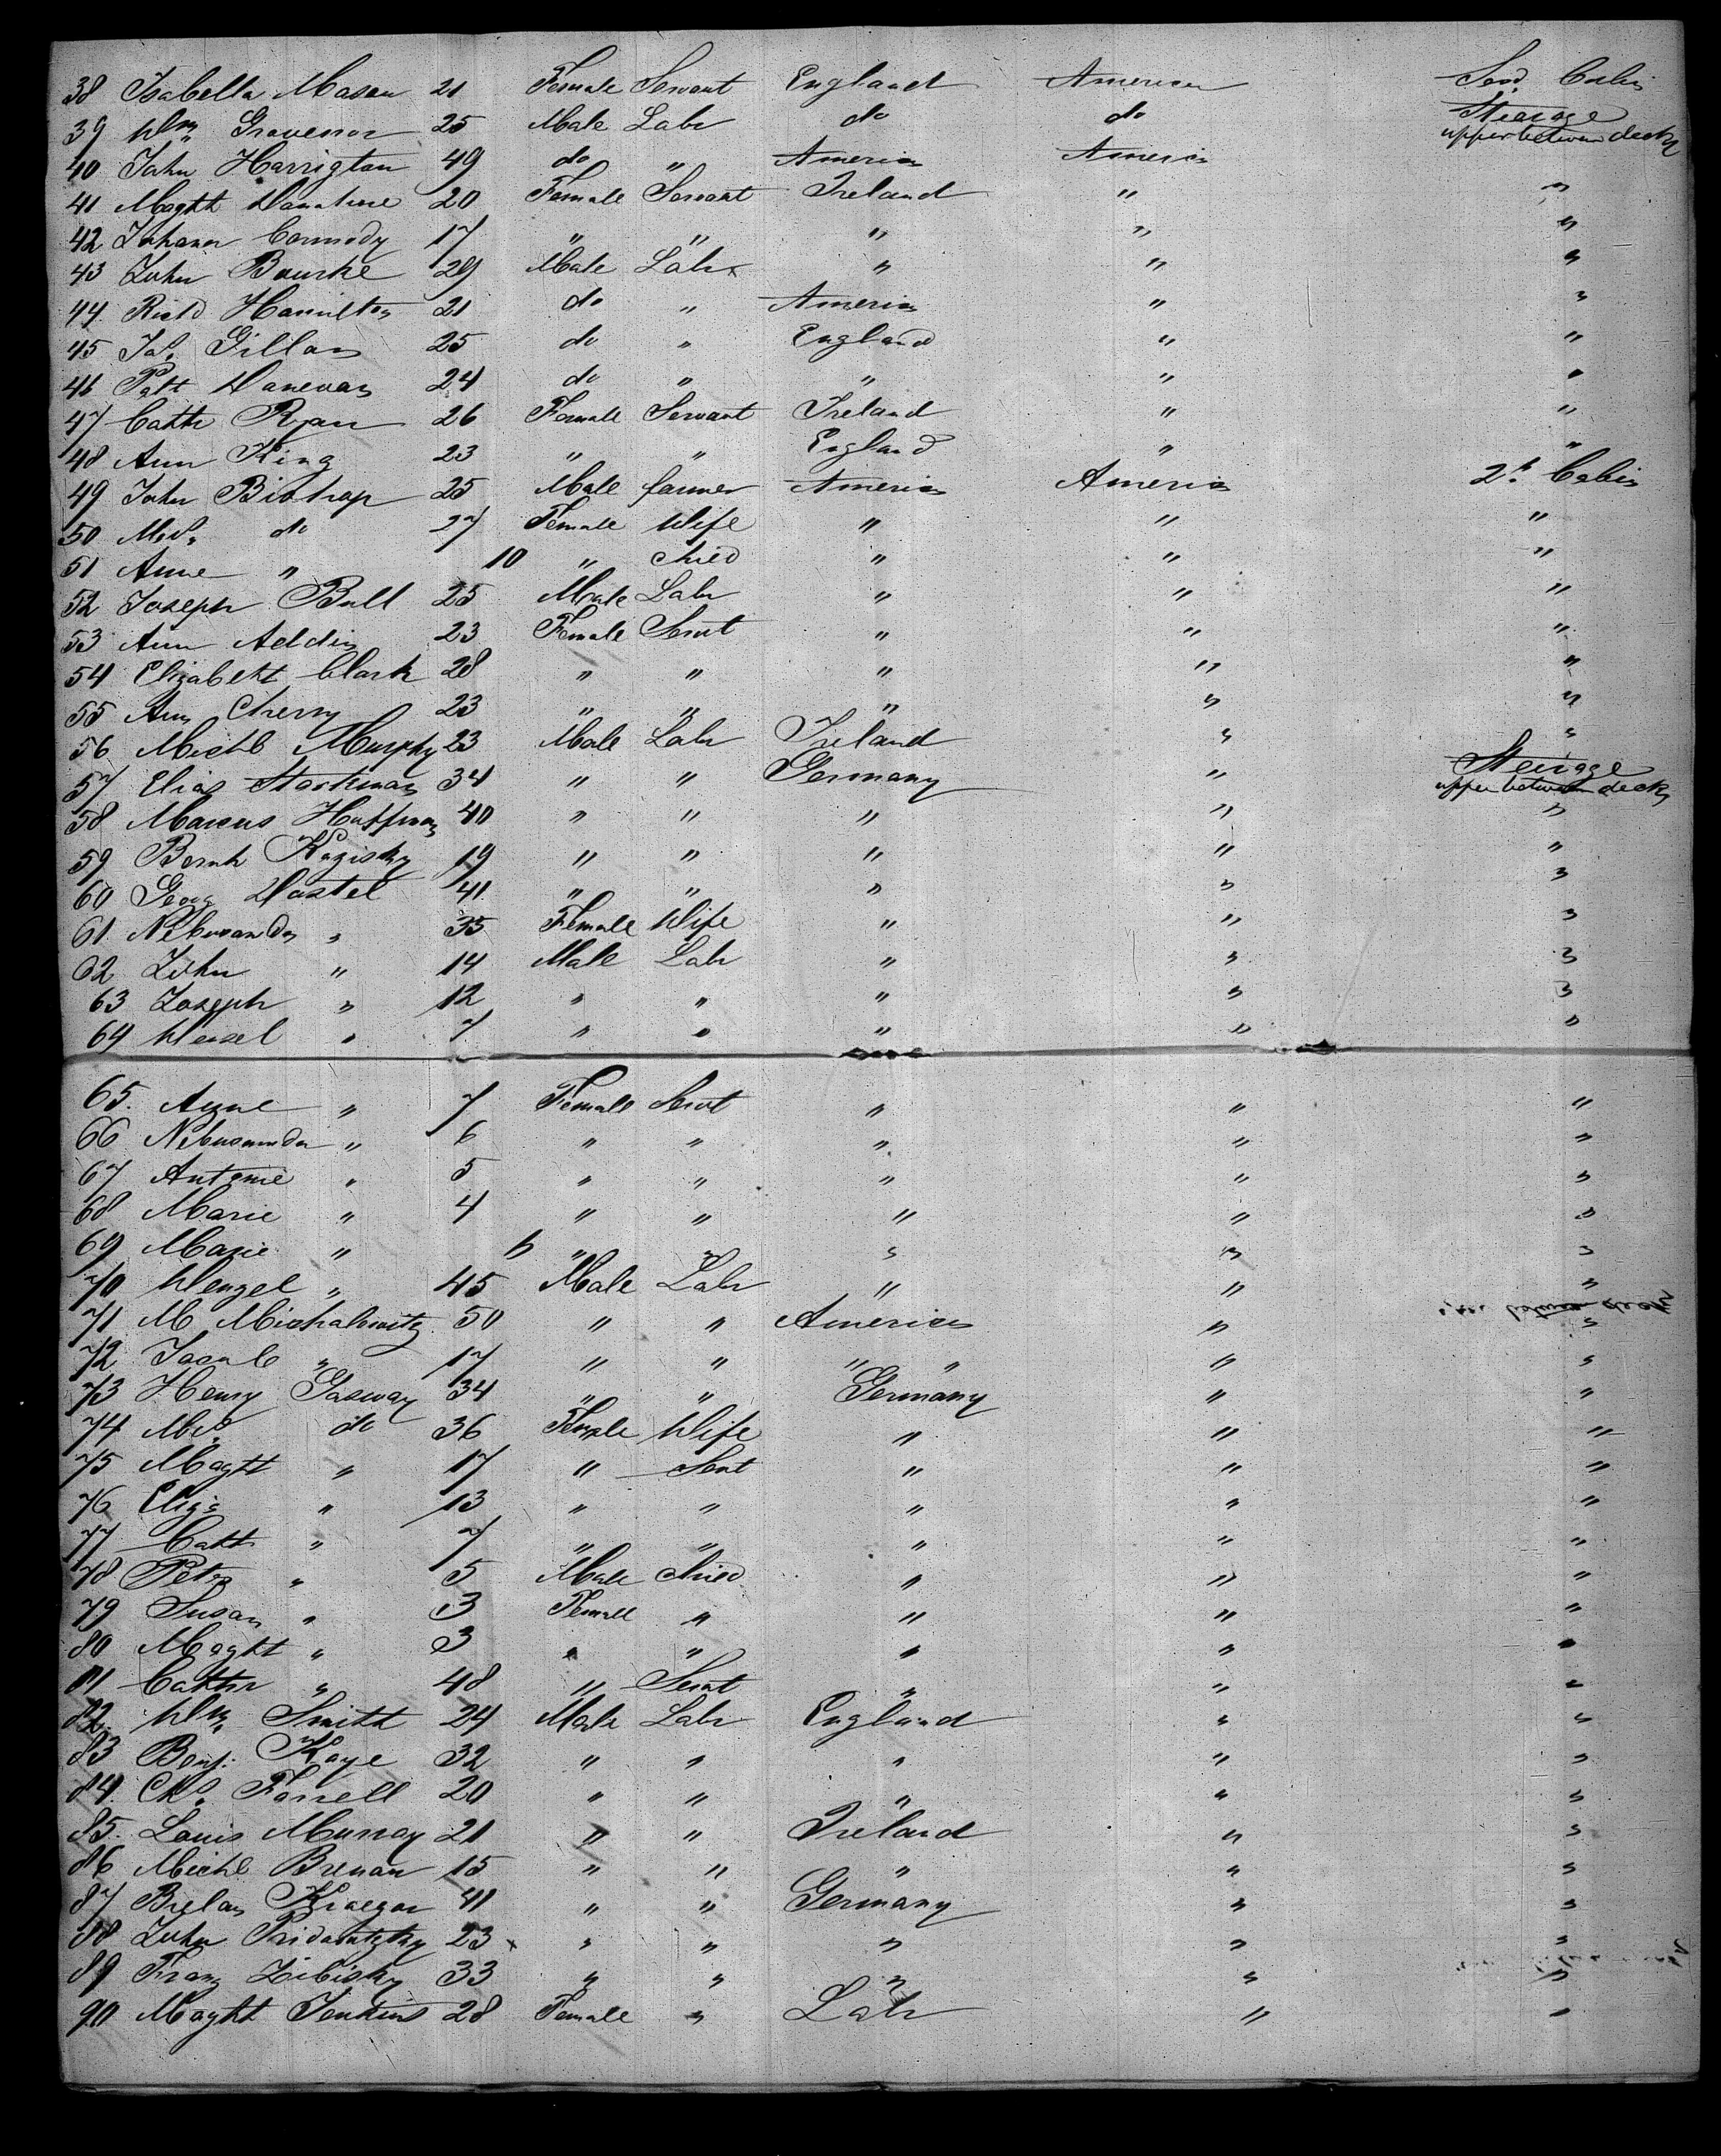 38 Isabella Mason 21 Female Servant England America Secd Cabin
39 Wm Gravenor 25 Male Labr do do Steerage
upper between decks
40 John Harrigton 49 do " America America
41 Magtt 20 Female Servant Ireland " "
42 Johana Carmody 17 " " " " "
43 John Bourke 29 Male Labr " " "
44 Richd Hamilton 21 do " America " "
45 Jas. Gillan 25 do " England " "
46 Patt Donevan 24 do " " " "
47 Cathr Ryan 26 Female Servant Ireland " "
48 Ann King 23 " " England " "
49 John Bishop 25 Male farmer America America 2d Cabin
50 Mrs. do 27 Female Wife " " "
51 Anne " 10 " Child " " "
52 Joseph Bull 25 Male Labr " " "
53 Ann Addin 23 Female Servt " " "
54 Elizabeth Clark 28 " " " " "
55 Ann Cherry 23 " " " " "
56 Michl Murphy 23 Male Labr Ireland " "
57 Elias Stockman 34 " " Germany " Steerage
upper between decks
58 Marcus Huffman 40 " " " " "
59 Bernh Kagisky 19 " " " " "
60 Georg Wastel 41 " " " " "
61 " 35 Female Wife " " "
62 John " 14 Male Labr " " "
63 Joseph " 12 " " " " "
64 Wensel " 7 " " " " "
65. Anne " 7 Female Servt " " "
66 " 6 " " " " "
67 Antonie " 5 " " " " "
68 Marie " 4 " " " " "
69 Marie " " " " " "
70 Wenzel " 45 Male Labr " " "
71 M Michalowitz 50 " " America " "
72 Jacob " 17 " " " " " "
73 Henry Gasway 34 " " Germany " "
74 Mrs. do 36 Female Wife " " "
75 Magtt " 17 " Servt " " "
76 Eliza " 13 " " " " "
77 Cath " 7 " " " " "
78 Peter " 5 Male Child " " "
79 Susan " 3 Female " " " "
80 Magtt " 3 " " " " "
81 Cathr " 48 " Servt " " "
82 Wm Smith 24 Male Labr England " "
83 Benj. Kaye 32 " " " " "
84. Chs. Farrell 20 " " " " "
85. Louis Murray 21 " " Ireland " "
86 Michl Brenan 15 " " " " "
87 Kraegar 41 " " Germany " "
88 John 23 " " " " "
89 Franz Zibisky 33 " " " " "
90 Magtt Jenkins 28 Female " Labr " "